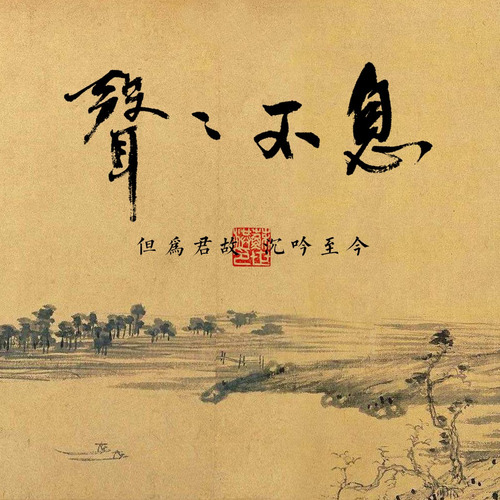 聲〻不息
但爲君故 沉吟至今